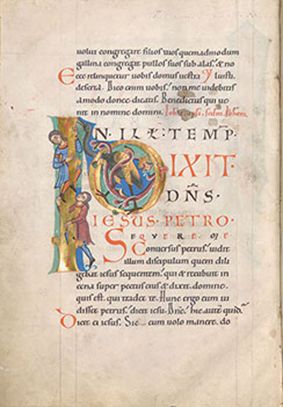 uoluit congregare filios tuos quemadmodum
gallina congregat pullos suos sub alas. & no
Ecce relinquetur uobis domus uestra
deserta. Dico enim uobis. non me uidebitis
amodo donec dicatis. Benedictus qui ue
nit in nomine domini.
IN ILL TEMP.
DIXIT
DNS
IESUS PETRO.
SEQUERE ME
Conuersus petrus. uidit
illum discipulum quem dili
gebat iesus sequentem. qui & recubuit in
cena super pectus eius & dixit. domine.
quis est. qui tradet te. Hunc ergo cum ui
disset petrus. dicit iesu. hic autem quid.
Dicit ei iesus. Sic eum uolo manere. do